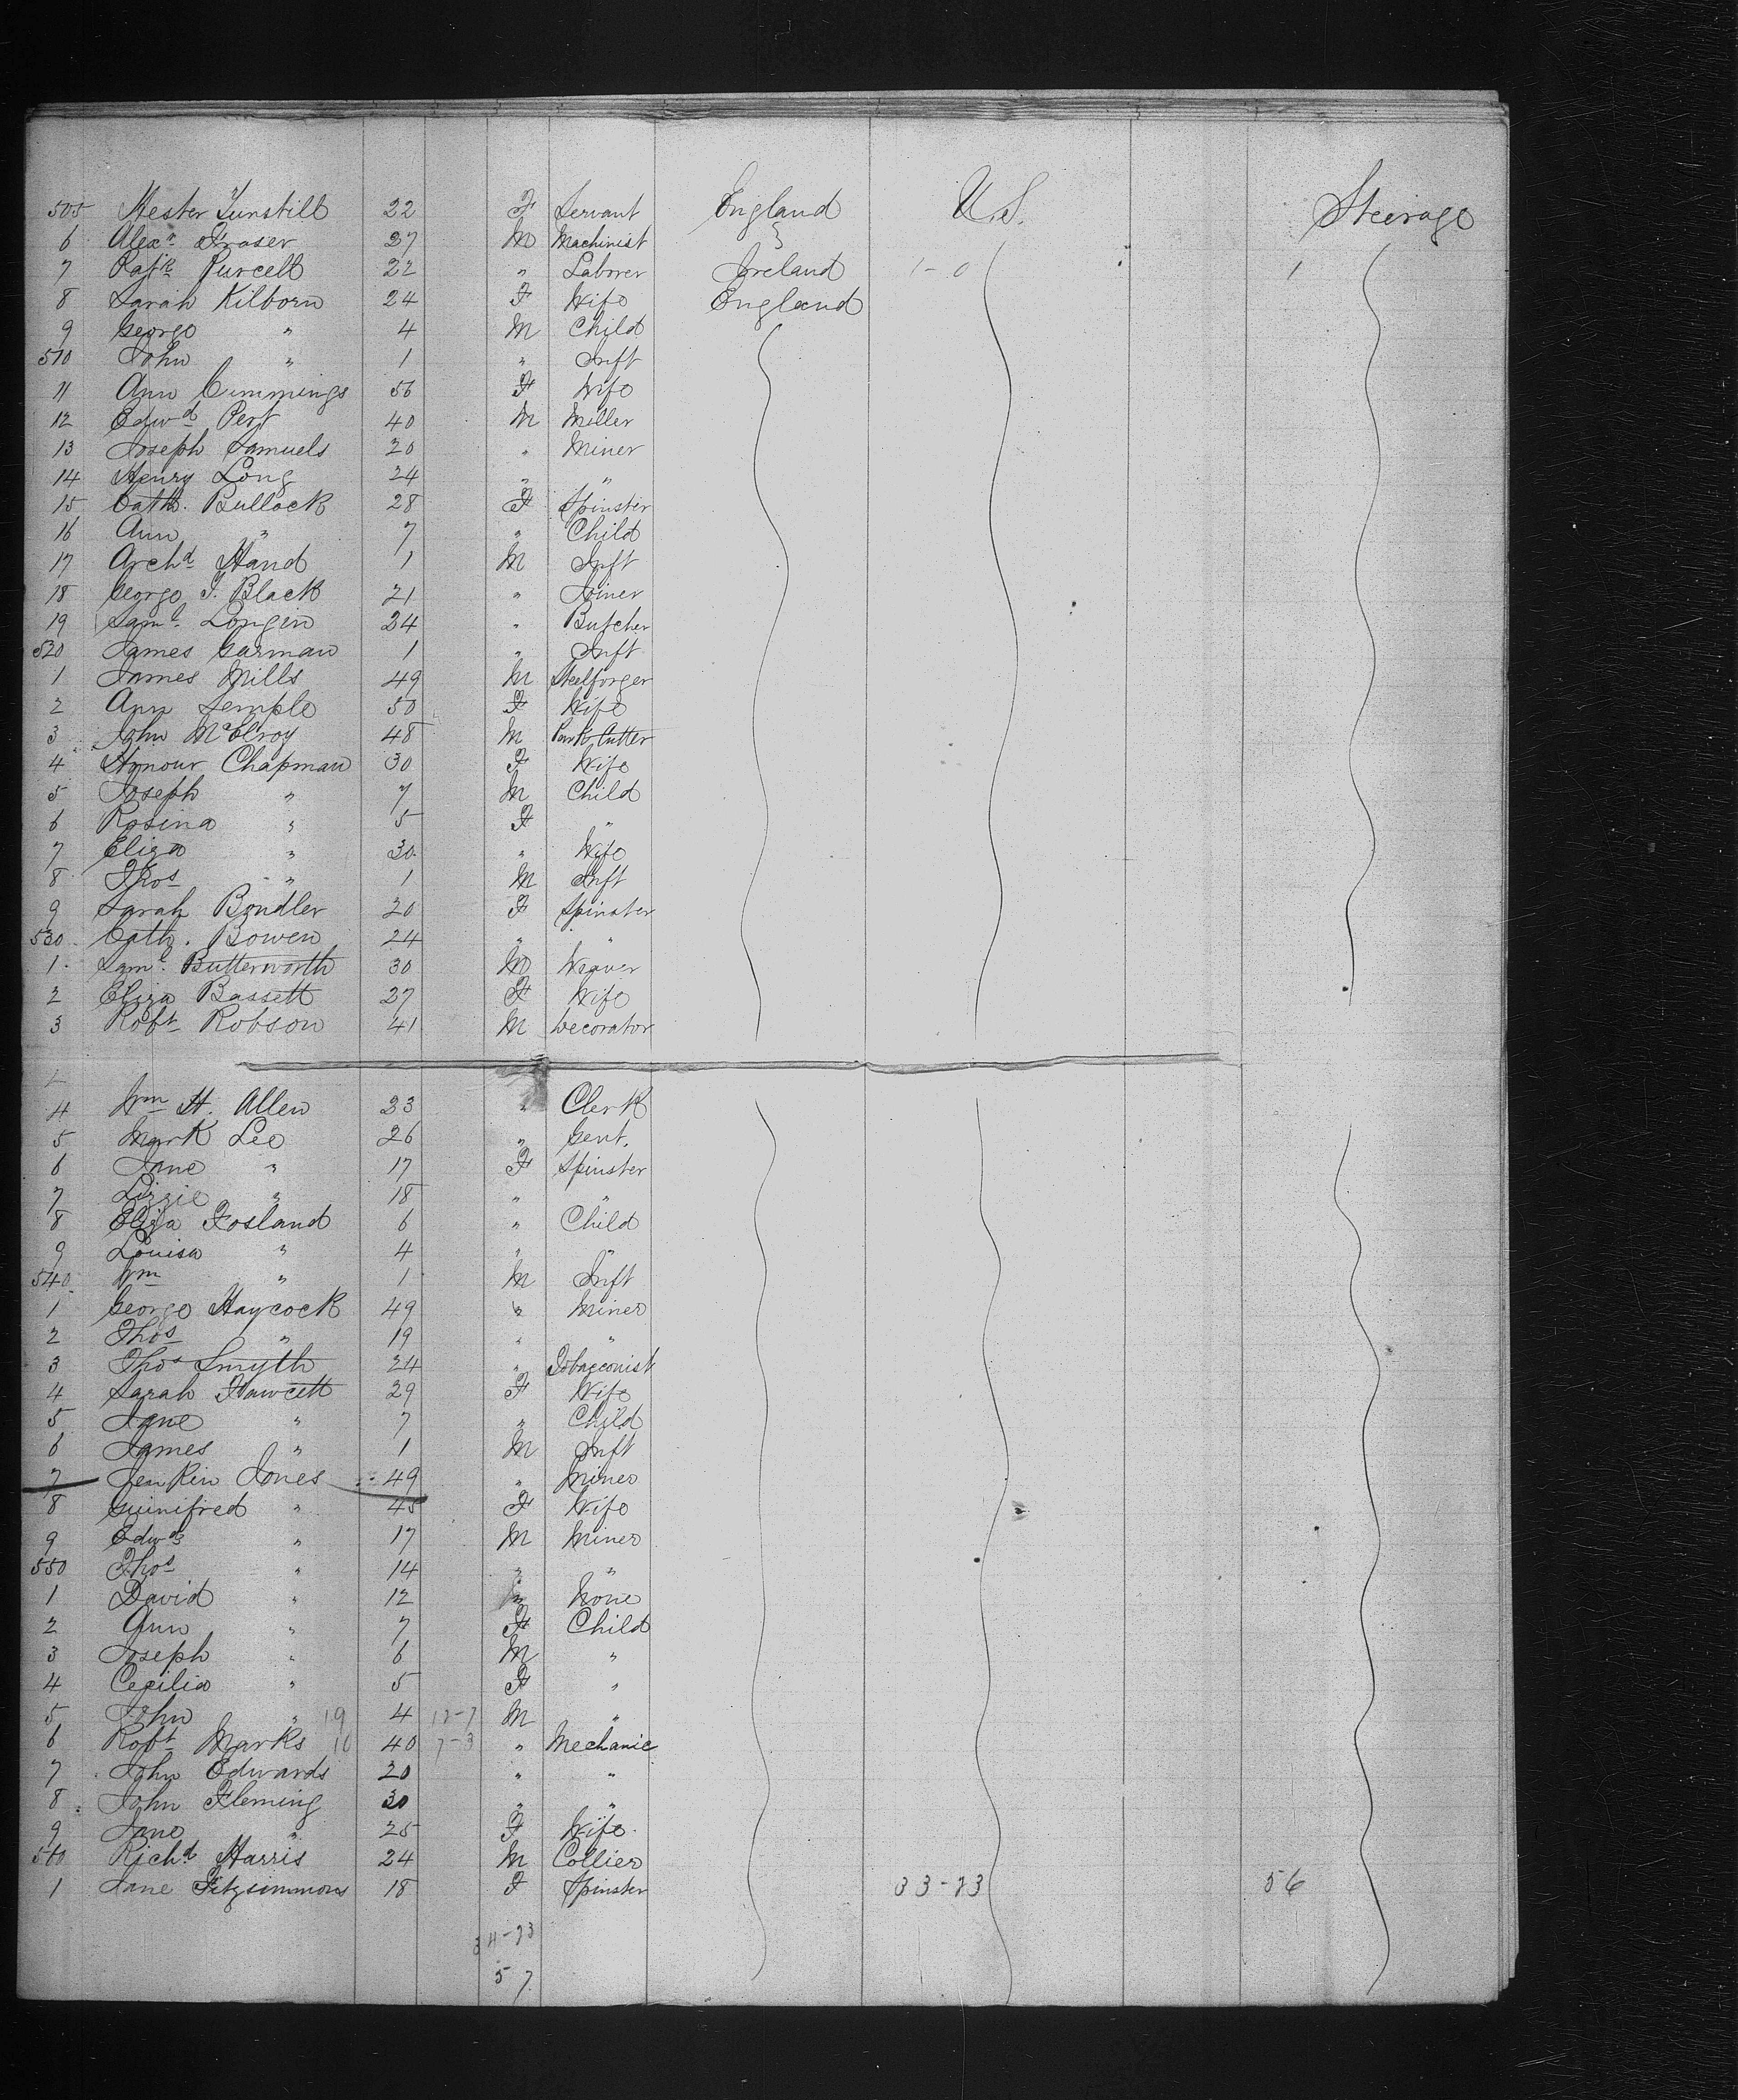 505 Hester Tunstill 22 F Servant England U.S. Steerage
6 Alexr Fraser 37 M Machinist "
7 Patk Purcell 22 " Laborer Ireland 1-0 1
8 Sarah Kilborn 24 F Wife England
9 George " 4 M Child
510 John " 1 " Inft
11 Ann Cummings 56 F Wife
12 Edwd Pert 40 M Miller
13 Joseph Samuels 20 " Miner
14 Henry Long 24 " "
15 Cath. Bullock 28 F Spinster
16 Ann " 7 " Child
17 Archd Hand 1 M Inft
18 George T. Black 21 " Joiner
19 Saml Longin 24 " Butcher
520 James Garman 1 " Inft
1 James Mills 49 M Steelforger
2 Ann Semple 50 F Wife
3 John McElroy 48 M Cutter
4 Honour Chapman 30 F Wife
5 Joseph " 7 M Child
6 Rosina " 5 F "
7 Eliza " 30 " Wife
8 Thos " 1 M Inft
9 Sarah Bondler 20 F Spinster
530 Cath. Bowen 24 " "
1 Saml Butterworth 30 M Weaver
2 Eliza Bassett 27 F Wife
3 Robt Robson 41 M Decorator
4 Wm H. Allen 23 " Clerk
5 Mark Lee 26 " Gent.
6 Jane " 17 F Spinster
7 Lizzie " 18 " "
8 Eliza Fosland 6 " Child
9 Louisa " 4 " "
540 Wm " 1 M Inft
1 George Haycock 49 " Miner
2 Thos " 19 " "
3 Thos Smyth 24 " Tobacconist
4 Sarah Fawcett 29 F Wife
5 Jane " 7 " Child
6 James " 1 M Inft
7 Jenkin Jones 49 " Miner
8 Guinifred " 45 F Wife
9 Edwd " 17 M Miner
550 Thos " 14 " "
1 David " 12 " None
2 Ann " 7 F Child
3 Joseph " 6 M "
4 Cecilia " 5 F "
5 John " 19 4 12-7 M "
6 Robt Marks 10 40 7-3 " Mechanic
7 John Edwards 20 " "
8 John Fleming 30 " "
9 Jane " 25 F Wife
560 Richd Harris 24 M Collier
1 Jane Fitzsimmons 18 F Spinster 33-23 56
34-23
57